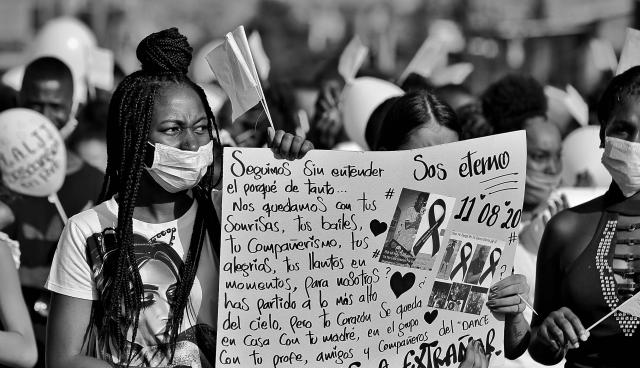 Seguimos Sin entender
el porqué de tanto...
Nos quedamos con tus
Sonrisas, tus bailes,
tu Compañerismo, tus
alegrias, tus llantos en
momentos, para nosotros
has partido a lo más alto
del cielo, pero tu Corazón Se queda
en Casa Con tu madre, en el grupo
Con tu profe, amigos y Compañeros del "DANCE
EXTRAÑAR
Sos eterno
11'08'20